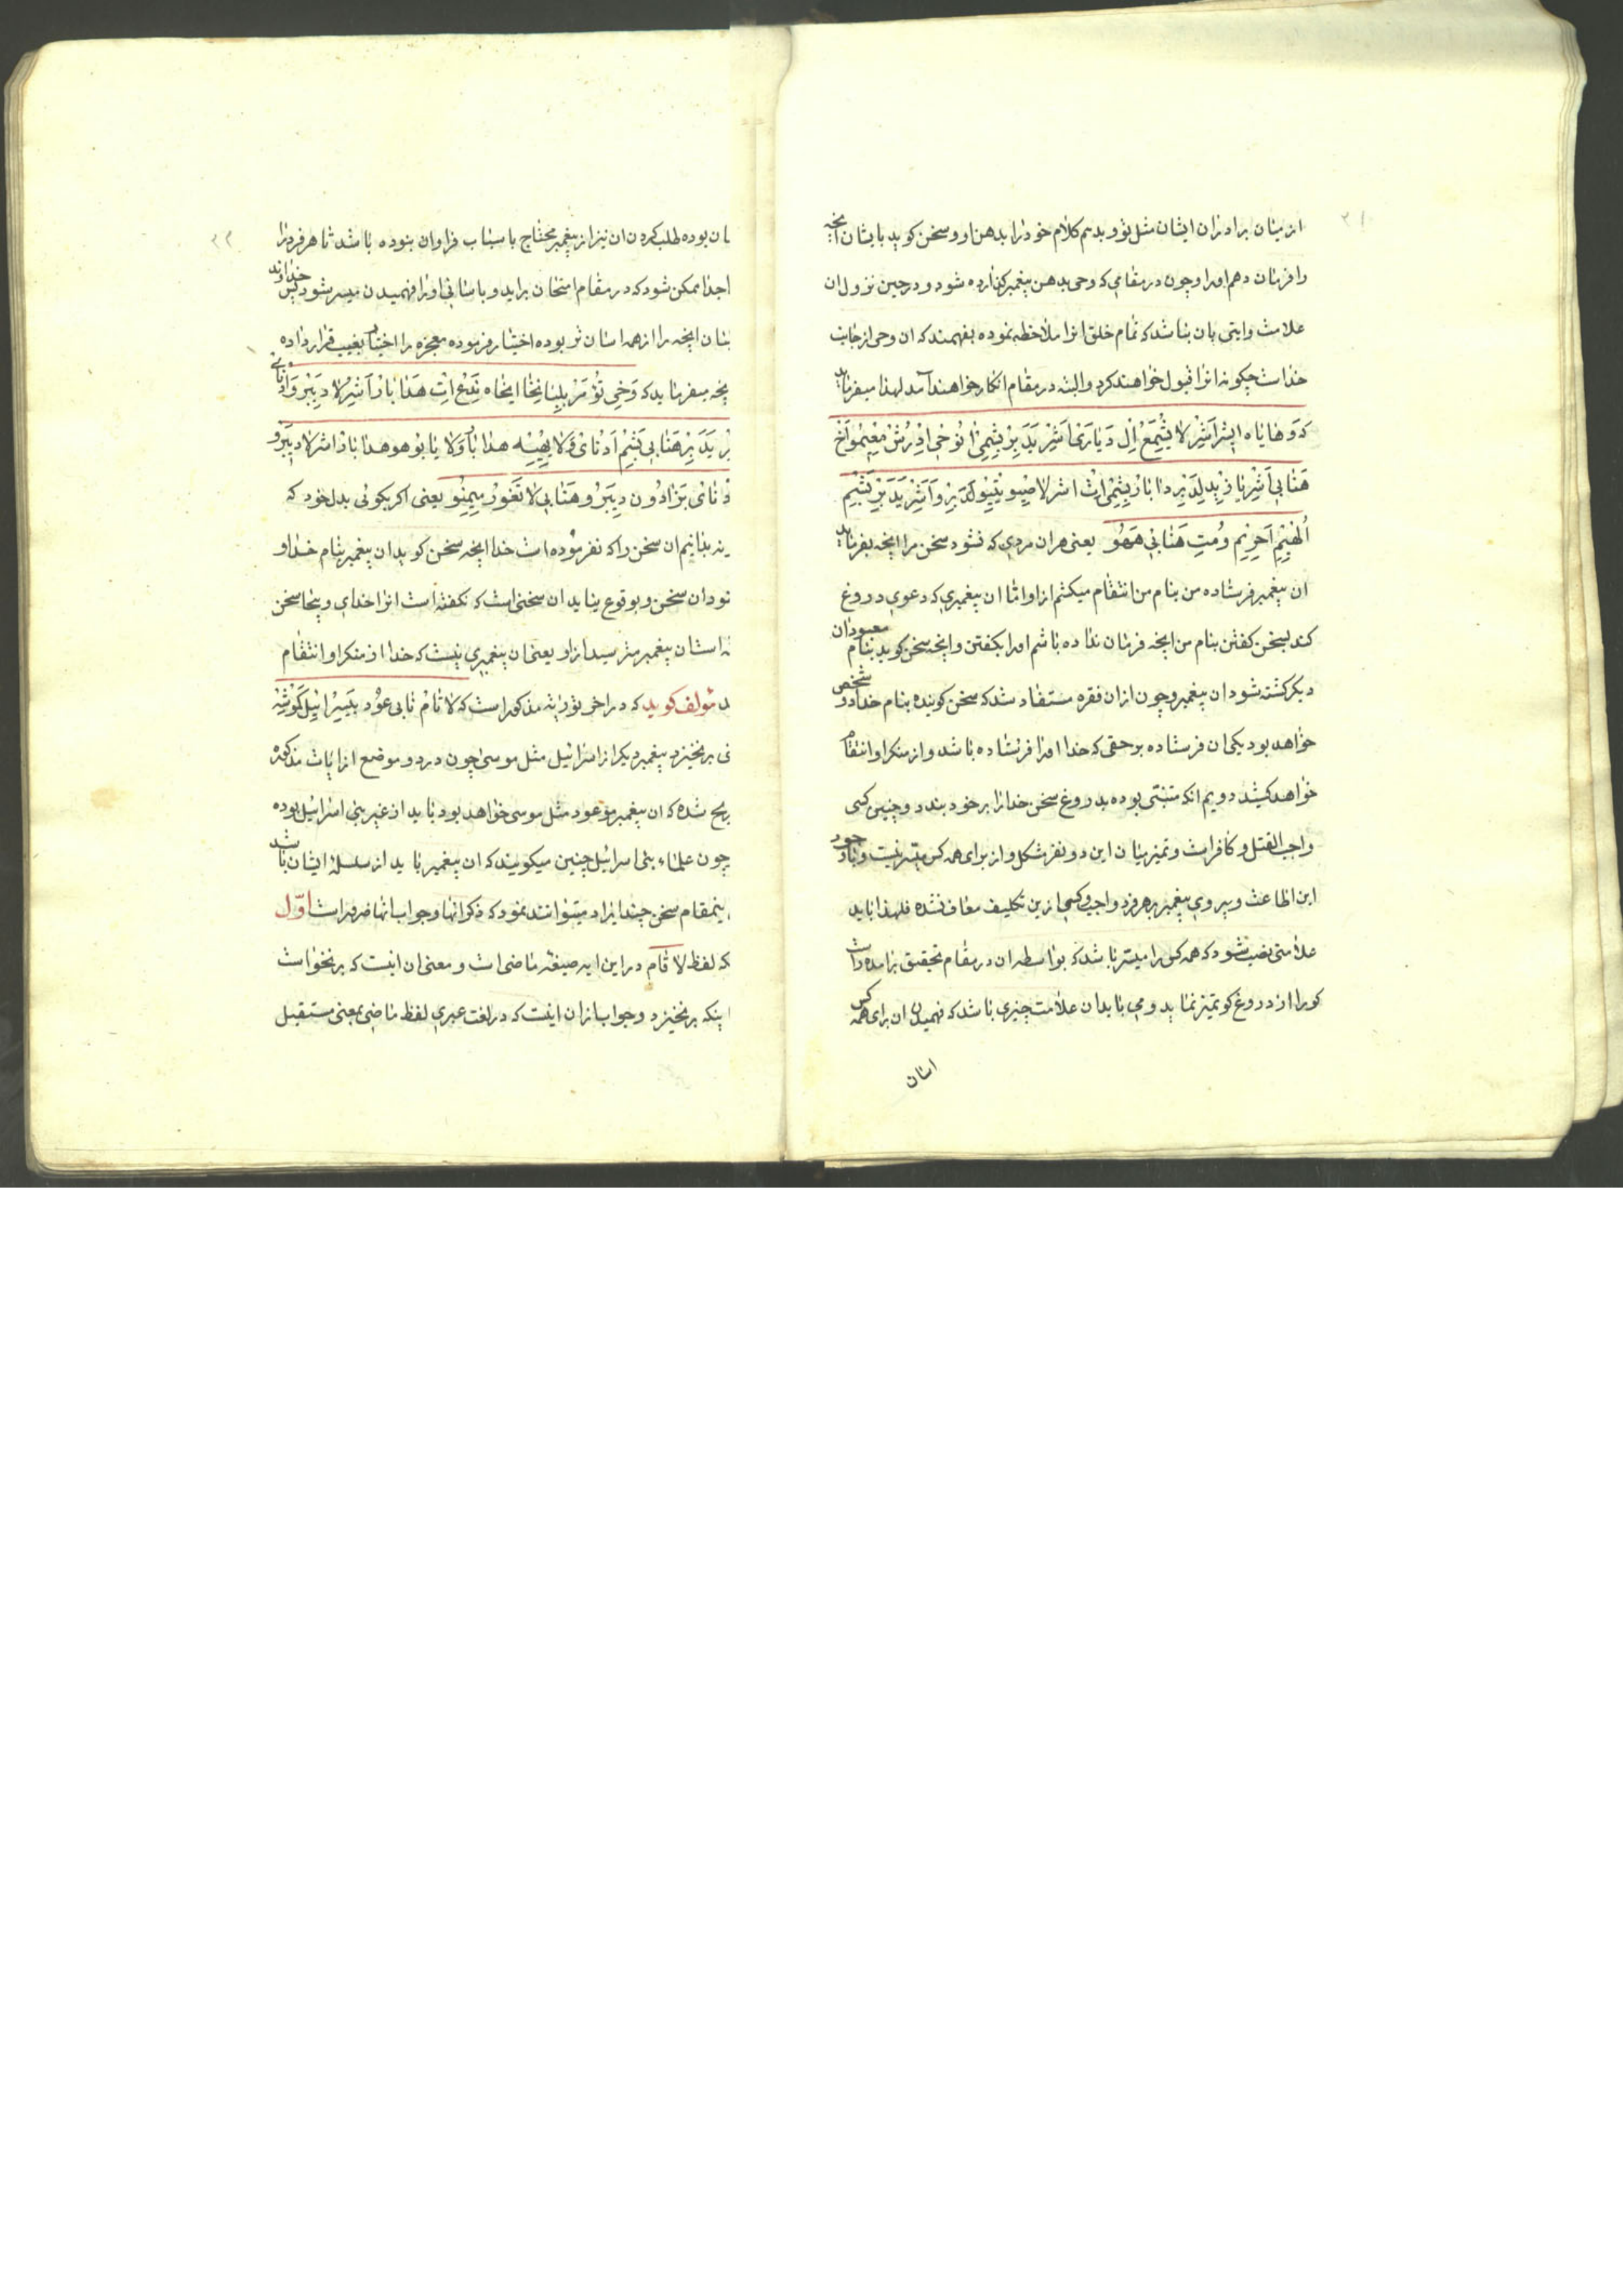 ۲۱
از میان برادران ایشان مثل تو و بدهم کلام خود را بدهن او و سخن کوید بایشان انچه
را فرمان دهم اورا و چون در مقامی که وحی بدهن پیغمبر کذارده شود و در حین نزول ان
علامت وایتی بان نباشد که تمام خلق انرا ملاحظه نموده بفهمند که ان وحی از جانب
خداست چکونه انرا قبول خواهند کرد والبته در مقام انکار خواهند آمد لهذا میفرماید
که وَهایاه ایش اَشِر لا یِشْمَع اِل دِبارَی اَشِر یَدَبِر بِشِمی انُوخی ادِرُش مِعِیمُو اَخ
هَنابی اَشِر یازید لِدَبِر دابار بِشِمی اِت اشر لا صیویتیو لِدَبِر وَاَشِر یَدَبِر بِشِم
اِلُهیم اَحِرِیم وُمِت هَنابی هَهُو یعنی هران مردی که نشنود سخن مرا انچه بفرماید
ان پیغمبر فرستاده من بنام من انتقام میکشم از او اما ان پیغمبری که دعوی دروغ
کند بسخن کفتن بنام من انچه فرمان نداده باشم اورا بکفتن وانچه سخن کوید بنام معبودان
دیکر کشته شود ان پیغمبر و چون ازان فقره مستفاد شد که سخن کوینده بنام خدا دو شخص
خواهد بود یکی ان فرستاده برحقی که خدا اورا فرستاده باشد واز منکر او انتقام
خواهد کشید دویم انکه متنبی بوده بدروغ سخن خدا را بر خود بندد و چنین کسی
واجب القتل و کافر است و تمیز میان این دو نفر مشکل و از برای همه کس میسر نیست و با وجود
این اطاعت و پیروی پیغمبر بر هر فرد واجب و کسی ازین تکلیف معاف نشده فلهذا باید
علامتی نصب شود که همه کس را میسر باشد که بواسطه ان در مقام تحقیق برامده راست
کو را از دروغ کو تمیز نماید و می باید ان علامت چیزی باشد که فهمیدن ان برای همه کس
اسان
۲۲
ان بوده طلب کردن ان نیز از پیغمبر محتاج باسباب فراوان نبوده باشد تا هر فرد را
جدا ممکن شود که در مقام امتحان براید و باسانی اورا فهمیدن میسر شود پس خداوند
انچه را از همه اسان تر بوده اختیار فرموده معجزه را اخبار بغیب قرار داده
انچه میفرماید که وَخی تُؤمَر بِلِبابِخا ایخاه نِدَع اِت هَدابار اَشِر لا دِبِرو اَدُنای
یَدَبِر هَنابی بِشِم اَدُنای وَلا یِهْیِه هدابار وَلا یابو هو هدابار اشر لا دِبِرو
اَدُنای بِزادُون دِبِرُو هَنابی لا تَغُور مِیمِنُو یعنی اکر بکوئی بدل خود که
بدانیم ان سخن را که نفرموده است خدا انچه سخن کوید ان پیغمبر بنام خدا و
نبود ان سخن و بوقوع نیاید ان سخنی است که نکفته است انرا خدای و بیجا سخن
است ان پیغمبر مترسید از او یعنی ان پیغمبری نیست که خدا از منکر او انتقام
مؤلف کوید که در اخر توراة مذکور است که لا قام نابی عُود بِیِسْرائیل کَمُوشِه
یعنی برنخیزد پیغمبر دیکر از اسرائیل مثل موسی چون در دو موضع از ایات مذکوره
صریح شده که ان پیغمبر موعود مثل موسی خواهد بود باید از غیر بنی اسرائیل بوده
چون علماء بنی اسرائیل چنین میکویند که ان پیغمبر باید از سلسلهٔ ایشان باشد
اینمقام سخن چند ایراد میتوانند نمود که ذکر انها و جواب انها ضرور است اوّل
که لفظ لا قام در این ایه صیغهٔ ماضی است و معنی ان اینست که برنخواست
اینکه برنخیزد و جواب ازان اینست که در لغت عبری لفظ ماضی بمعنی مستقبل